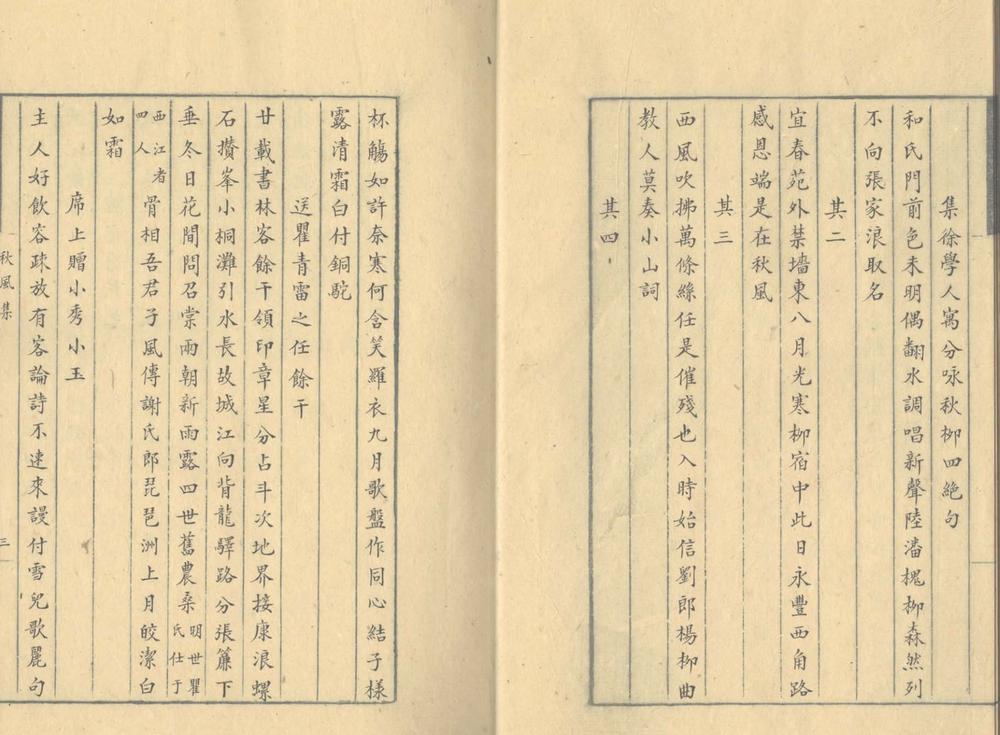 集徐學人寓分咏秋柳四絶句
和氏門前色未明偶翻水調唱新聲陸潘槐柳森然列
不向張家浪取名
其二
宜春苑外禁墻東八月光寒柳宿中此日永豐西角路
感恩端是在秋風
其三
西風吹拂萬條絲任是催殘也入時始信劉郎楊柳曲
教人莫奏小山詞
其四
杯觴如許奈寒何含笑羅衣九月歌盤作同心結子樣
露清霜白付銅駝
送瞿青雷之任餘干
廿載書林客餘干領印章星分占斗次地界接康浪螺
石攅峯小桐灘引水長故城江向背龍驛路分張簾下
垂冬日花間問召棠雨朝新雨露四世舊農桑明世瞿氏仕于
西江者四人骨相吾君子風傳謝氏郎琵琶洲上月皎潔白
如霜
席上贈小秀小玉
主人好飲容疎放有客論詩不速來謾付雪兒歌麗句
秋風集
三